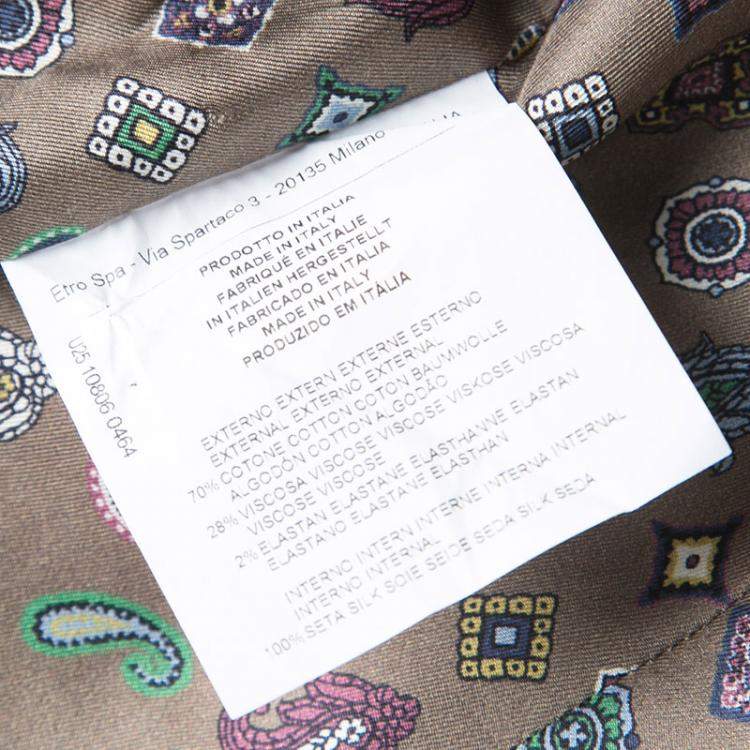 Etro Spa - Via Spartaco 3 - 20135 Milano
PRODOTTO IN ITALIA
MADE IN ITALY
FABRIQUÉ EN ITALIE
IN ITALIEN HERGESTELLT
FABRICADO EN ITALIA
MADE IN ITALY
PRODUZIDO EM ITALIA
U25 10806 0464
EXTERNO EXTERN EXTERNE ESTERNO
EXTERNAL EXTERNO EXTERNAL
70% COTONE COTTON COTON BAUMWOLLE
ALGODÓN COTTON ALGODÃO
28% VISCOSA VISCOSE VISCOSE VISKOSE VISCOSA
VISCOSE VISCOSE
2% ELASTAN ELASTANE ELASTHANNE ELASTAN
ELASTANO ELASTANE ELASTHAN
INTERNO INTERN INTERNE INTERNA INTERNAL
INTERNO INTERNAL
100% SETA SILK SOIE SEIDE SEDA SILK SEDA